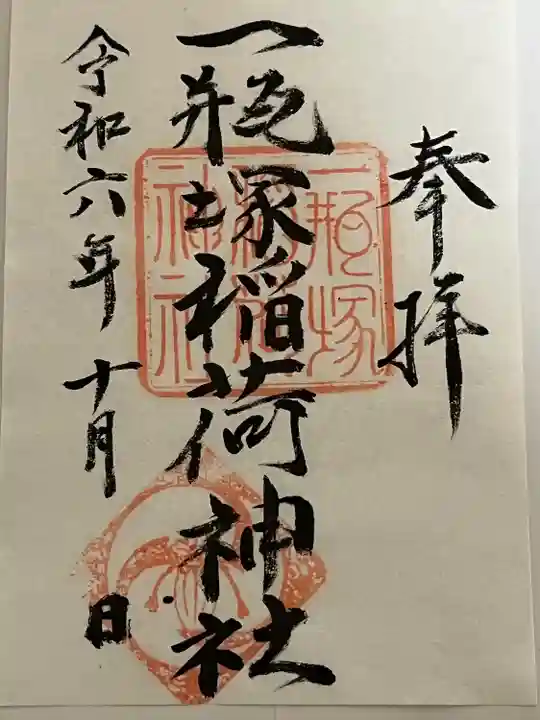 奉拝
一瓶塚稲荷神社
一瓶塚稲荷神社
令和六年十月 日